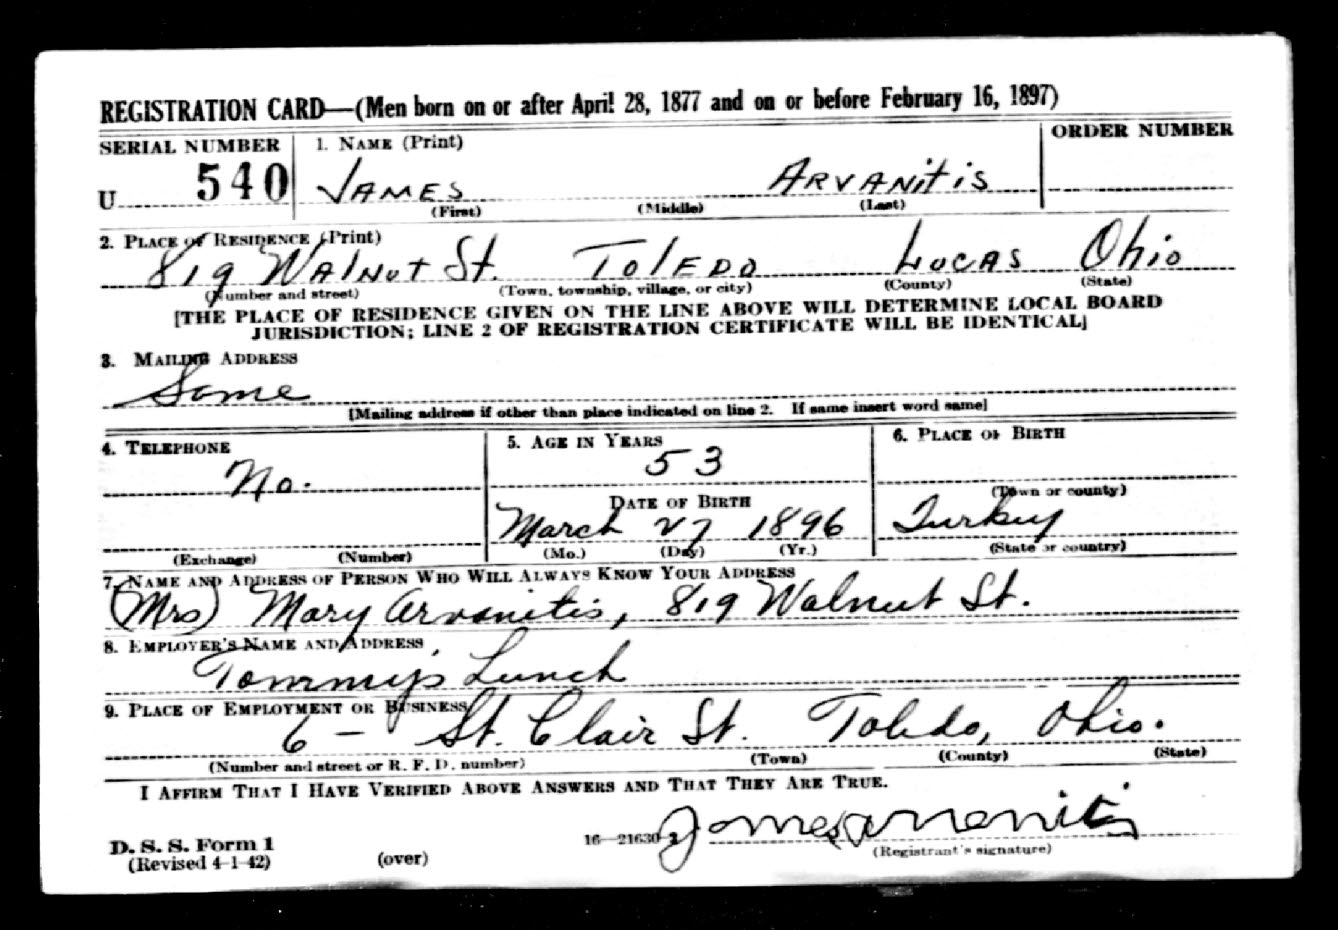 REGISTRATION CARD—(Men born on or after April 28, 1877 and on or before February 16, 1897)
SERIAL NUMBER 1. NAME (Print) ORDER NUMBER
U 540 JAMES ARVANITIS
(First) (Middle) (Last)
2. PLACE OF RESIDENCE (Print)
819 WALNUT St. TOLEDO LUCAS Ohio
(Number and street) (Town, township, village, or city) (County) (State)
[THE PLACE OF RESIDENCE GIVEN ON THE LINE ABOVE WILL DETERMINE LOCAL BOARD
JURISDICTION; LINE 2 OF REGISTRATION CERTIFICATE WILL BE IDENTICAL]
3. MAILING ADDRESS
Same
[Mailing address if other than place indicated on line 2. If same insert word same]
4. TELEPHONE 5. AGE IN YEARS 6. PLACE OF BIRTH
No. 53
DATE OF BIRTH (Town or county)
March 27 1896 Turkey
(Exchange) (Number) (Mo.) (Day) (Yr.) (State or country)
7. NAME AND ADDRESS OF PERSON WHO WILL ALWAYS KNOW YOUR ADDRESS
(Mrs) Mary Arvanitis, 819 Walnut St.
8. EMPLOYER'S NAME AND ADDRESS
Tommy's Lunch
9. PLACE OF EMPLOYMENT OR BUSINESS
6 – St. Clair St. Toledo, Ohio.
(Number and street or R. F. D. number) (Town) (County) (State)
I AFFIRM THAT I HAVE VERIFIED ABOVE ANSWERS AND THAT THEY ARE TRUE.
D. S. S. Form 1 16—21630-2 James Arvanitis
(Revised 4-1-42) (over) (Registrant's signature)